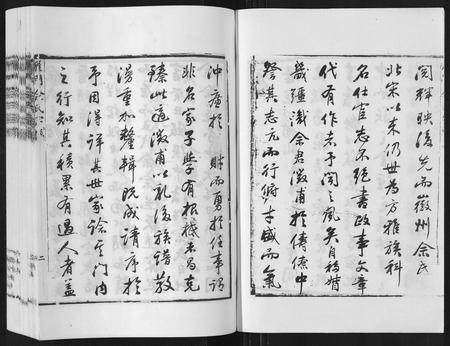 閥輝映後先而徽州余氏
北宋以来仍世為方雅族科
名仕宦志不絕書政事文章
代有作者予聞之夙矣自移婚
畿疆識余君澂甫於傳僚中
督其志亢而行俯才盛而氣
沖廉於財而勇於任事謂
非名家子學有根柢未易克
臻此適澂甫以礼後族譜散
漫重加釐輯既成請序於
予因得詳其世家於門内
之行知其積累有過人者蓋
二